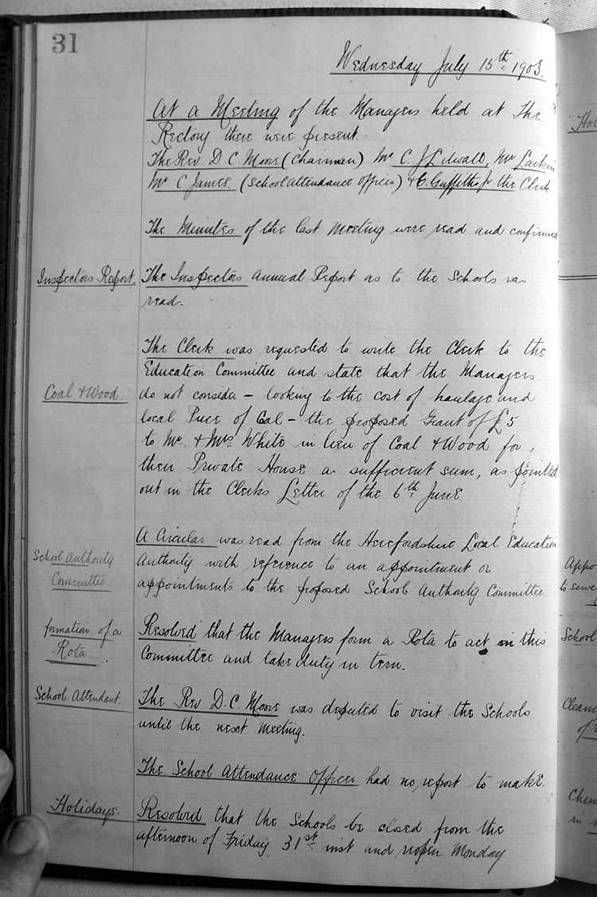 31
Wednesday July 15th 1903.
At a Meeting of the Managers held at The
Rectory there were present.
The Rev D C Moore (Chairman) Mr C J Lilwall, Mr Larkin
Mr C James. (School Attendance Officer) & C. Griffiths Jr the Clerk
The Minutes of the last Meeting were read and confirmed
Inspectors Report. The Inspectors Annual Report as to the Schools was
read.
The Clerk was requested to write the Clerk to the
Education Committee and state that the Managers
Coal & Wood. do not consider - looking to the cost of haulage and
local Price of Coal - the proposed Grant of £5
to Mr. & Mrs White in lieu of Coal & Wood for
their Private House a sufficient sum, as pointed
out in the Clerks Letter of the 6th June
A Circular was read from the Herefordshire Local Education
School Authority Authority with reference to an appointment or
Committee. appointments to the proposed School Authority Committee
formation of a Resolved that the Managers form a Rota to act on this
Rota. Committee and take duty in turn.
School Attendant. The Rev D. C. Moore was deputed to visit the Schools
until the next Meeting.
The School Attendance Officer had no report to make.
Holidays. Resolved that the Schools be closed from the
afternoon of Friday 31st inst and reopen Monday
Appo
School